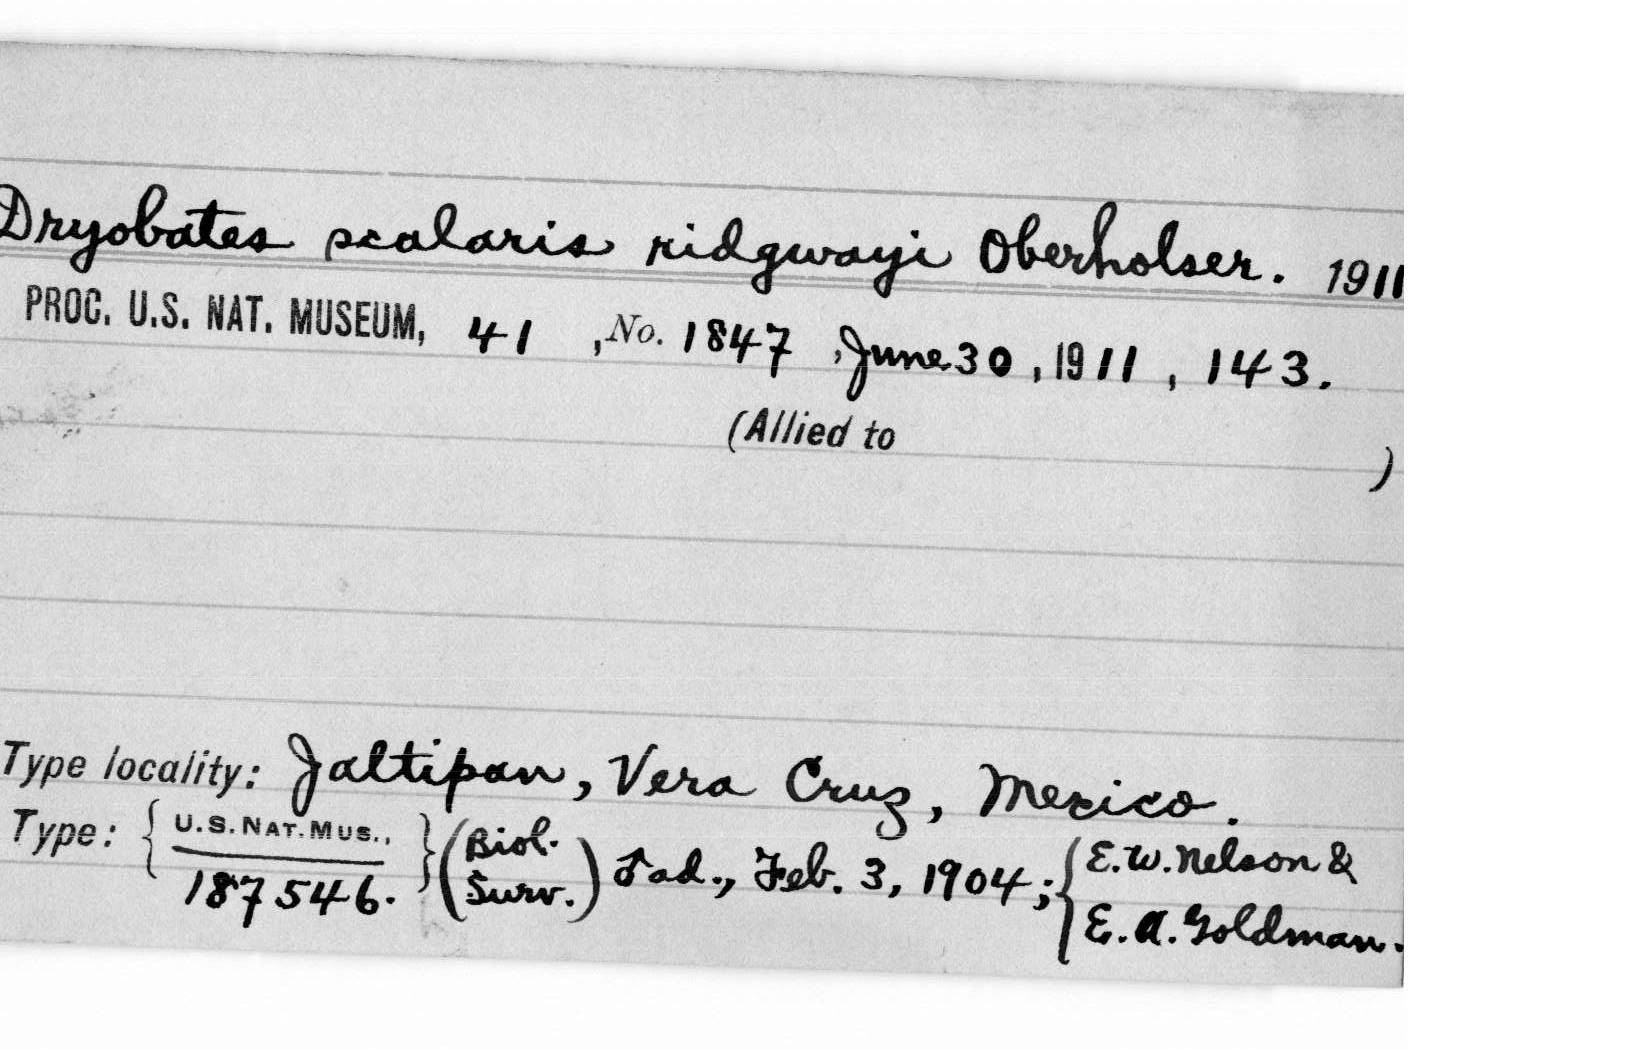 Dryobates scalaris ridgwayi Oberholser. 1911
PROC. U.S. NAT. MUSEUM, 41 , No. 1847 , June 30 , 1911 , 143.
(Allied to )
Type locality: Jaltipan, Vera Cruz, Mexico.
Type: { U.S. NAT. MUS., 187546. } (Biol. Surv.) ♂ ad., Feb. 3, 1904; { E. W. Nelson &
E. A. Goldman.